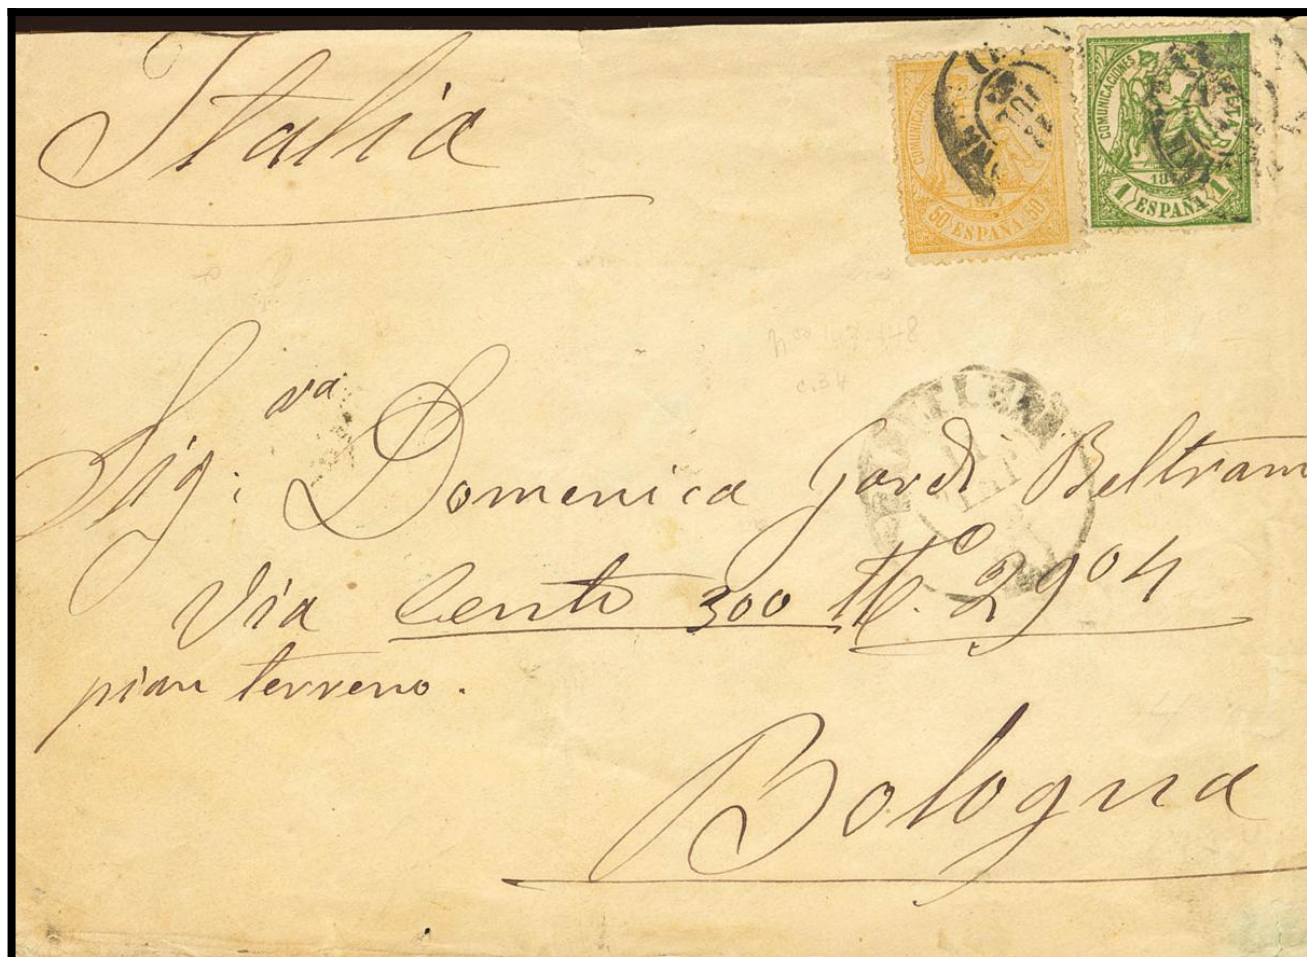 Italia
COMUNICACIONES
50 ESPAÑA 50
JUL
74
COMUNICACIONES
1 ESPAÑA 1
Sig:ra Domenica Gardi Beltram
Via Cento 300 N.o 2904
pian terreno.
Bologna